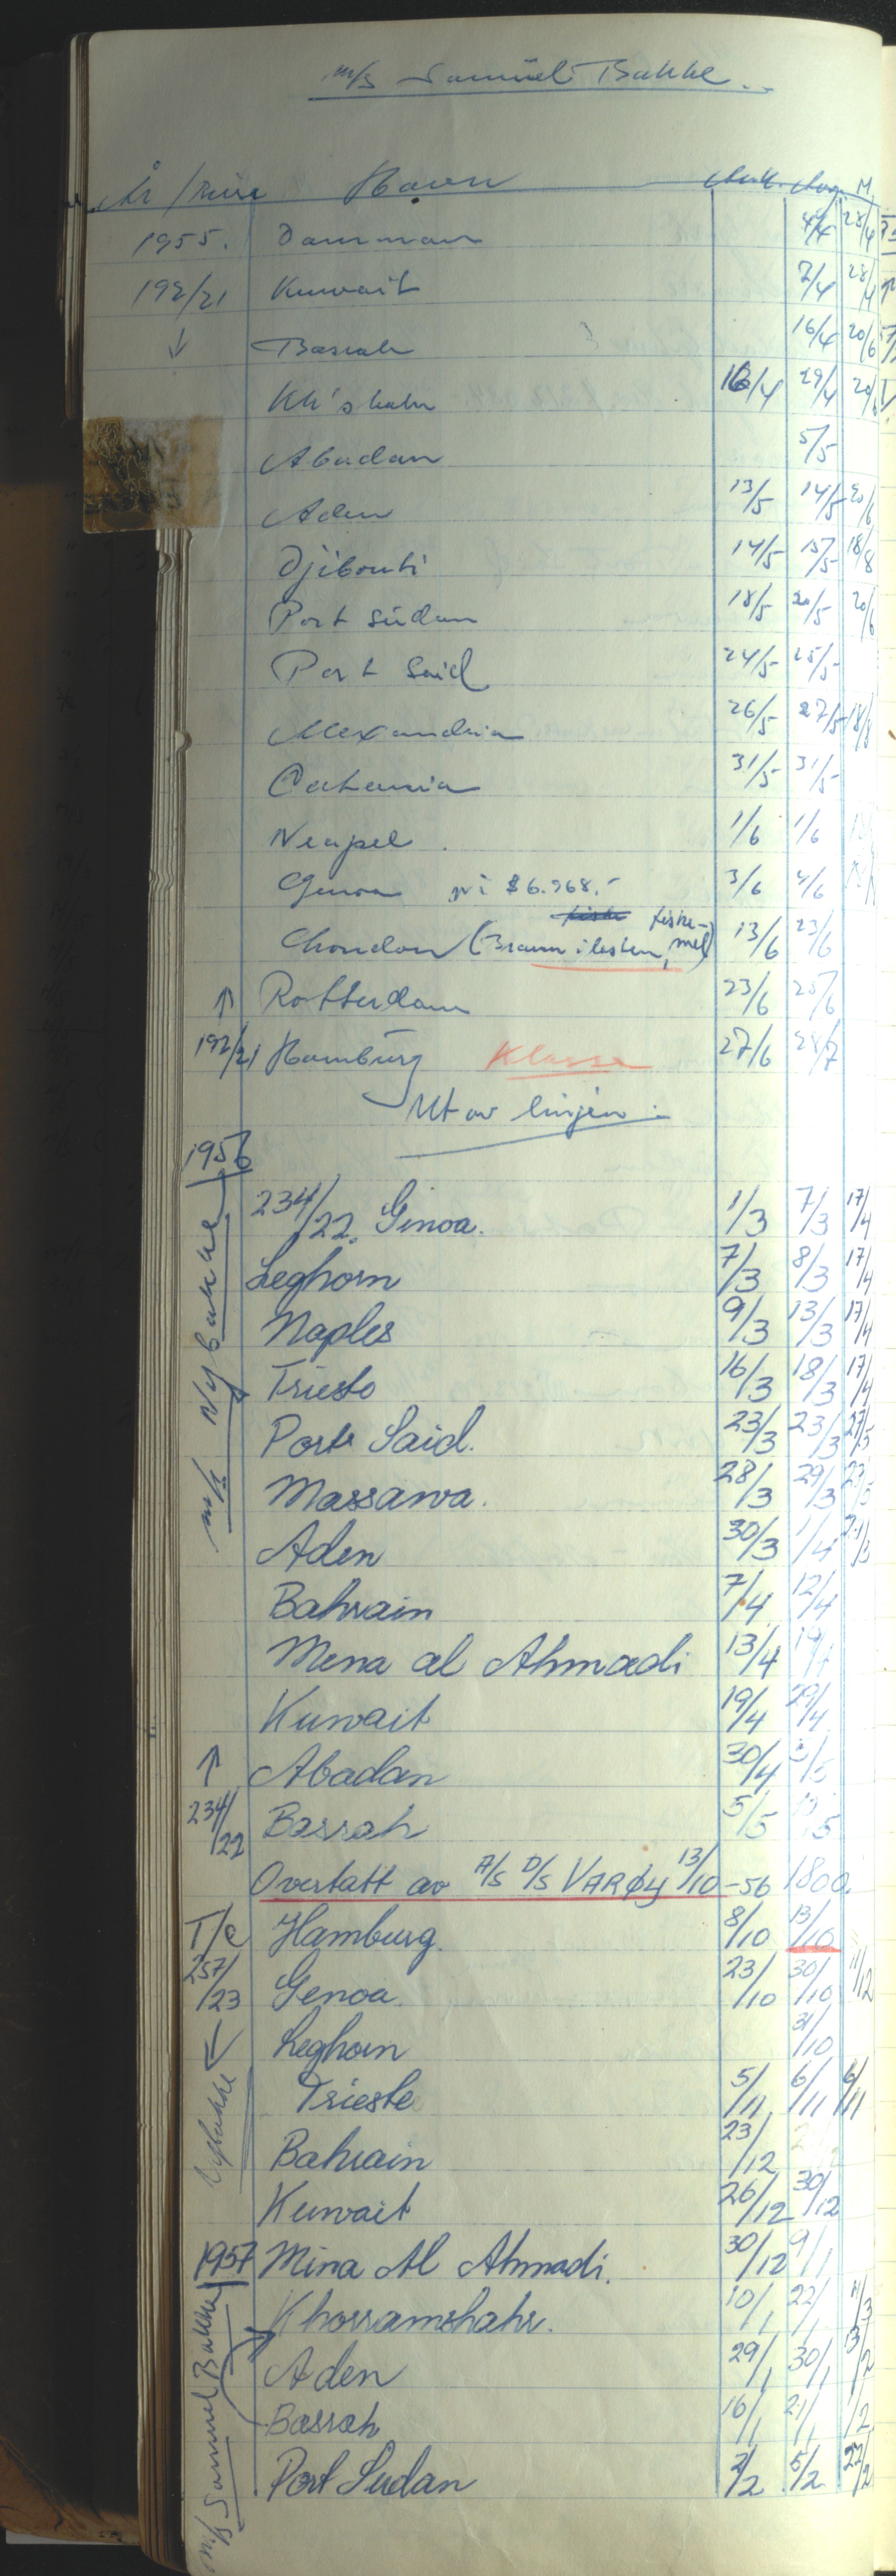 m/s Samuel Bakke
År / Reise Havn Ank. Avg. M
1955. Damman 4/4 28/4
192/21 Kuwait 7/4 28/4
↓ Basrah 16/4 20/6
Kh's hahr 16/4 29/4 20/6
Abadan 5/5
Aden 13/5 14/5 20/6
Djibouti 14/5 15/5 18/8
Port Sudan 18/5 20/5 20/6
Port Said 24/5 25/5
Alexandria 26/5 27/5 18/8
Catania 31/5 31/5
Neapel. 1/6 1/6
Genoa $6.968.- 3/6 4/6
fiske fiske-
London (Brann i lasten, mel) 13/6 23/6
↑ Rotterdam 23/6 25/6
192/21 Hamburg Klasse 27/6 28/7
Ut av linjen
1956
m/s Nybakke
234/22. Genoa. 1/3 7/3 17/4
Leghorn 7/3 8/3 17/4
Naples 9/3 13/3 17/4
Triesto 16/3 18/3 17/4
Port Said. 23/3 23/3 27/5
Massawa. 28/3 29/3 23/5
Aden 30/3 1/4
Bahrain 7/4 12/4
Mena al Ahmadi 13/4 19/4
Kuwait 19/4 29/4
↑ Abadan 30/4
234/22 Basrah 5/5
Overtatt av A/S D/S VARØY 13/10-56 1800.
T/C Hamburg. 8/10 13/10
257/23 Genoa. 23/10 30/10 11/12
↓ Leghorn 31/10
Nybakke
Trieste 5/11 6/11 6/11
Bahrain 23/12
Kuwait 26/12 30/12
1957 Mina Al Ahmadi. 30/12 9/1
m/s Samuel Bakke
Khorramshahr. 10/1 22/1
Aden 29/1 30/1 13/2
Basrah 16/1 21/1
Port Sudan 2/2 5/2 22/2